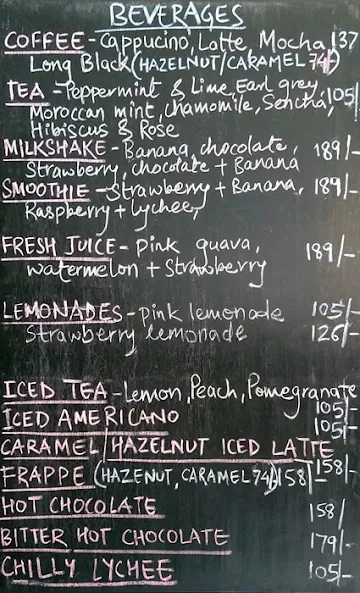 BEVERAGES
COFFEE - Cappucino, Latte, Mocha 137
Long Black (HAZELNUT/CARAMEL 74/-)
TEA - Peppermint & Lime, Earl grey,
Moroccan mint, chamomile, Sencha, 105/-
Hibiscus & Rose
MILKSHAKE - Banana, chocolate, 189/-
Strawberry, chocolate + Banana
SMOOTHIE - Strawberry + Banana, 189/-
Raspberry + lychee,
FRESH JUICE - pink guava, 189/-
watermelon + Strawberry
LEMONADES - pink lemonade 105/-
Strawberry lemonade 126/-
ICED TEA - Lemon, Peach, Pomegranate
105/-
ICED AMERICANO 105/-
CARAMEL/HAZELNUT ICED LATTE
158/-
FRAPPE (HAZENUT, CARAMEL 74/-) 158/-
HOT CHOCOLATE 158/
BITTER HOT CHOCOLATE 179/-
CHILLY LYCHEE 105/-